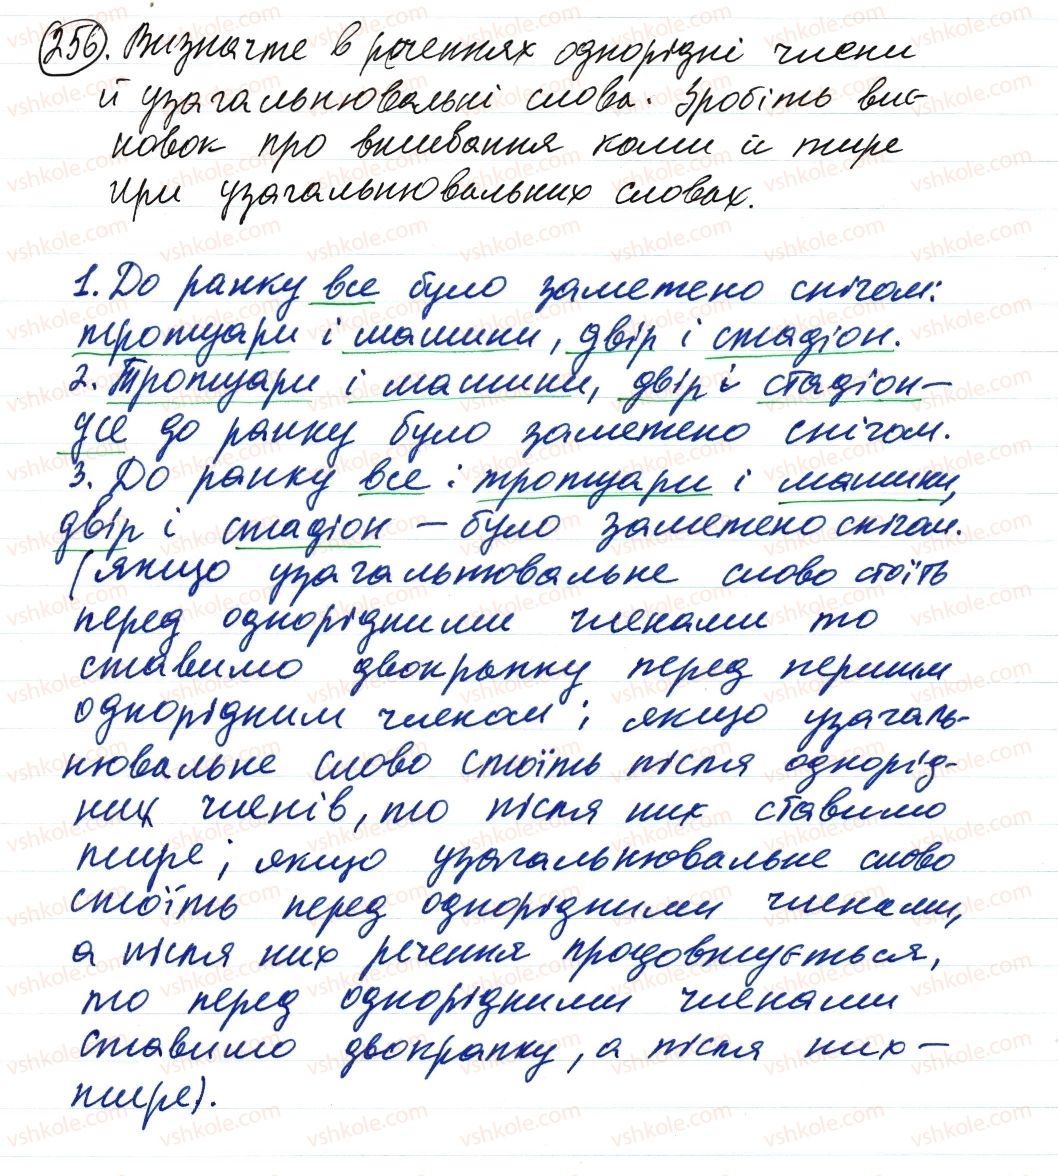 256. Визначте в реченнях однорідні члени
й узагальнювальні слова. Зробіть вис-
новок про вживання коми й тире
при узагальнювальних словах.
1. До ранку все було заметено снігом:
тротуари і машини, двір і стадіон.
2. Тротуари і машини, двір і стадіон –
усе до ранку було заметено снігом.
3. До ранку все : тротуари і машини,
двір і стадіон – було заметено снігом.
(якщо узагальнювальне слово стоїть
перед однорідними членами то
ставимо двокрапку перед першим
однорідним членом; якщо узагаль-
нювальне слово стоїть після однорід-
них членів, то після них ставимо
тире; якщо узагальнювальне слово
стоїть перед однорідними членами,
а після них речення продовжується,
то перед однорідними членами
ставимо двокрапку, а після них –
тире).